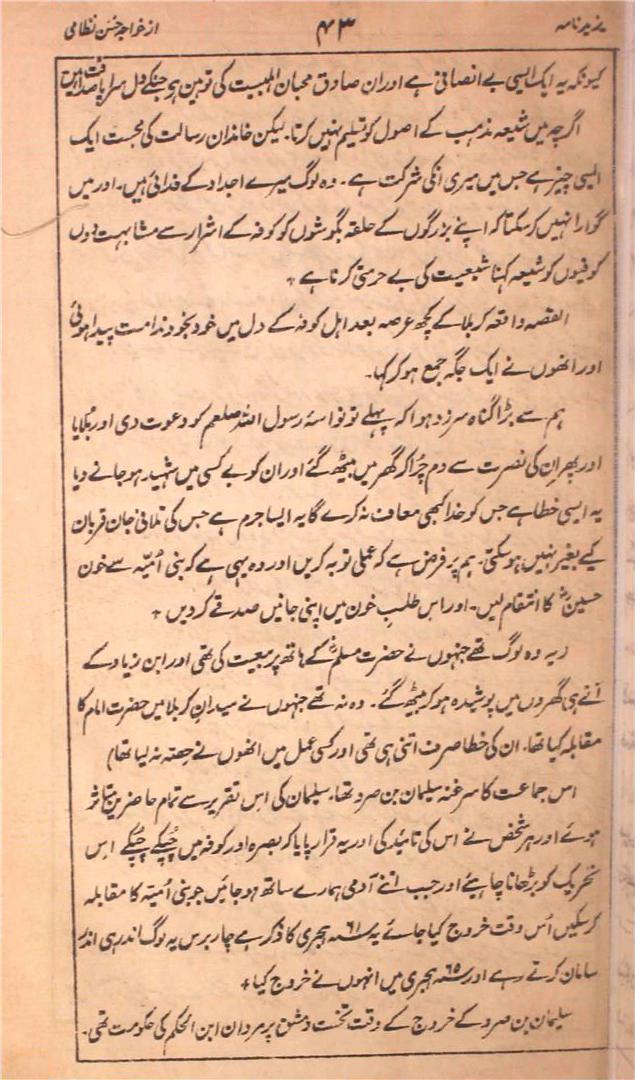 یزید نامہ ۴۳ از خواجہ حسن نظامی
کیونکہ یہ ایک ایسی بے انصافی ہے اور ان صادق محبان اہلبیت کی توہین ہے جنکے دل سراپا صداقت ہیں
اگرچہ میں شیعہ مذہب کے اصول کو تسلیم نہیں کرتا۔ لیکن خاندان رسالت کی محبت ایک
ایسی چیز ہے جس میں میری انکی شرکت ہے۔ وہ لوگ میرے اجداد کے فدائی ہیں۔ اور میں
گوارا نہیں کرسکتا کہ اپنے بزرگوں کے حلقہ بگوشوں کو کوفہ کے اشرار سے مشابہت دوں
کوفیوں کو شیعہ کہنا شیعیت کی بے حرمتی کرنا ہے ٭
القصہ واقعہ کربلا کے کچھ عرصہ بعد اہل کوفہ کے دل میں خود بخود ندامت پیدا ہوئی
اور انھوں نے ایک جگہ جمع ہوکر کہا۔
ہم سے بڑا گناہ سرزد ہوا کہ پہلے تو نواسۂ رسول اللہ صلعم کو دعوت دی اور بُلایا
اور پھر ان کی نصرت سے دم چُراکر گھر میں بیٹھ گئے اور ان کو بے کسی میں شہید ہوجانے دیا
یہ ایسی خطا ہے جس کو خدا کبھی معاف نہ کرے گا یہ ایسا جرم ہے جس کی تلافی جان قربان
کیے بغیر نہیں ہوسکتی۔ ہم پر فرض ہے کہ عملی توبہ کریں اور وہ یہی ہے کہ بنی اُمیّہ سے خون
حسینؓ کا انتقام لیں۔ اور اس طلبِ خون میں اپنی جانیں صدقے کر دیں ٭
(یہ وہ لوگ تھے جنہوں نے حضرت مسلمؓ کے ہاتھ پر بیعت کی تھی اور ابن زیاد کے
آتے ہی گھروں میں پوشیدہ ہوکر بیٹھ گئے۔ وہ نہ تھے جنہوں نے میدان کربلا میں حضرت امام کا
مقابلہ کیا تھا۔ ان کی خطا صرف اتنی ہی تھی اور کسی عمل میں انھوں نے حصّہ نہ لیا تھا)
اس جماعت کا سرغنہ سلیمان بن صرد تھا۔ سلیمان کی اس تقریر سے تمام حاضرین متاثر
ہوئے اور ہر شخص نے اس کی تائید کی اور یہ قرار پایا کہ بصرہ اور کوفہ میں چُپکے چُپکے اس
تحریک کو بڑھانا چاہیئے اور جب اتنے آدمی ہمارے ساتھ ہوجائیں جو بنی اُمیّہ کا مقابلہ
کرسکیں اُس وقت خروج کیا جائے یہ ۶۱ سنہ ہجری کا ذکر ہے چار برس یہ لوگ اندر ہی اندر
سامان کرتے رہے اور ۶۵ سنہ ہجری میں انہوں نے خروج کیا ٭
سلیمان بن صرد کے خروج کے وقت تخت دمشق پر مردان ابن الحکم کی حکومت تھی۔